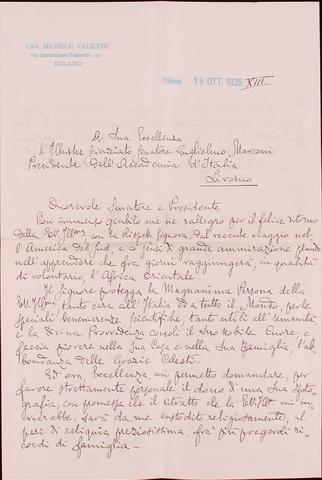 Cav. MICHELE VALENTE
MILANO
Milano 18 OTT. 1935 XIII
A Sua Eccellenza
l'Illustre Scienziato Senatore Guglielmo Marconi
Presidente dell'Accademia d'Italia
Livorno
Onorevole Senatore e Presidente,
Con immenso giubilo me ne rallegro per il felice ritorno
della E.V. Ill.ma con la Signora, dal recente viaggio nel-
l'America del Sud, e a sensi di grande ammirazione plaudo
nell'apprendere che fra giorni raggiungerà, in qualità
di volontario, l'Africa Orientale.
Il Signore protegga la Magnanima Persona della
E.V. Ill.ma, tanto cara all'Italia ed a tutto il Mondo, per le
speciali benemerenze scientifiche, tanto utili all'Umanità
e la Divina Provvidenza consoli il Suo Nobile Cuore, e
faccia piovere nella Sua Casa e nella Sua Famiglia, l'ab-
bondanza delle Grazie Celesti.
Ed ora Eccellenza, mi permetto domandare, per
favore strettamente personale il dono di una Sua foto-
grafia, con promessa che il ritratto che la E.V. Ill.ma mi in-
vierebbe, sarà da me custodito religiosamente, al
pari di reliquia preziosissima, fra i più pregevoli ri-
cordi di famiglia -